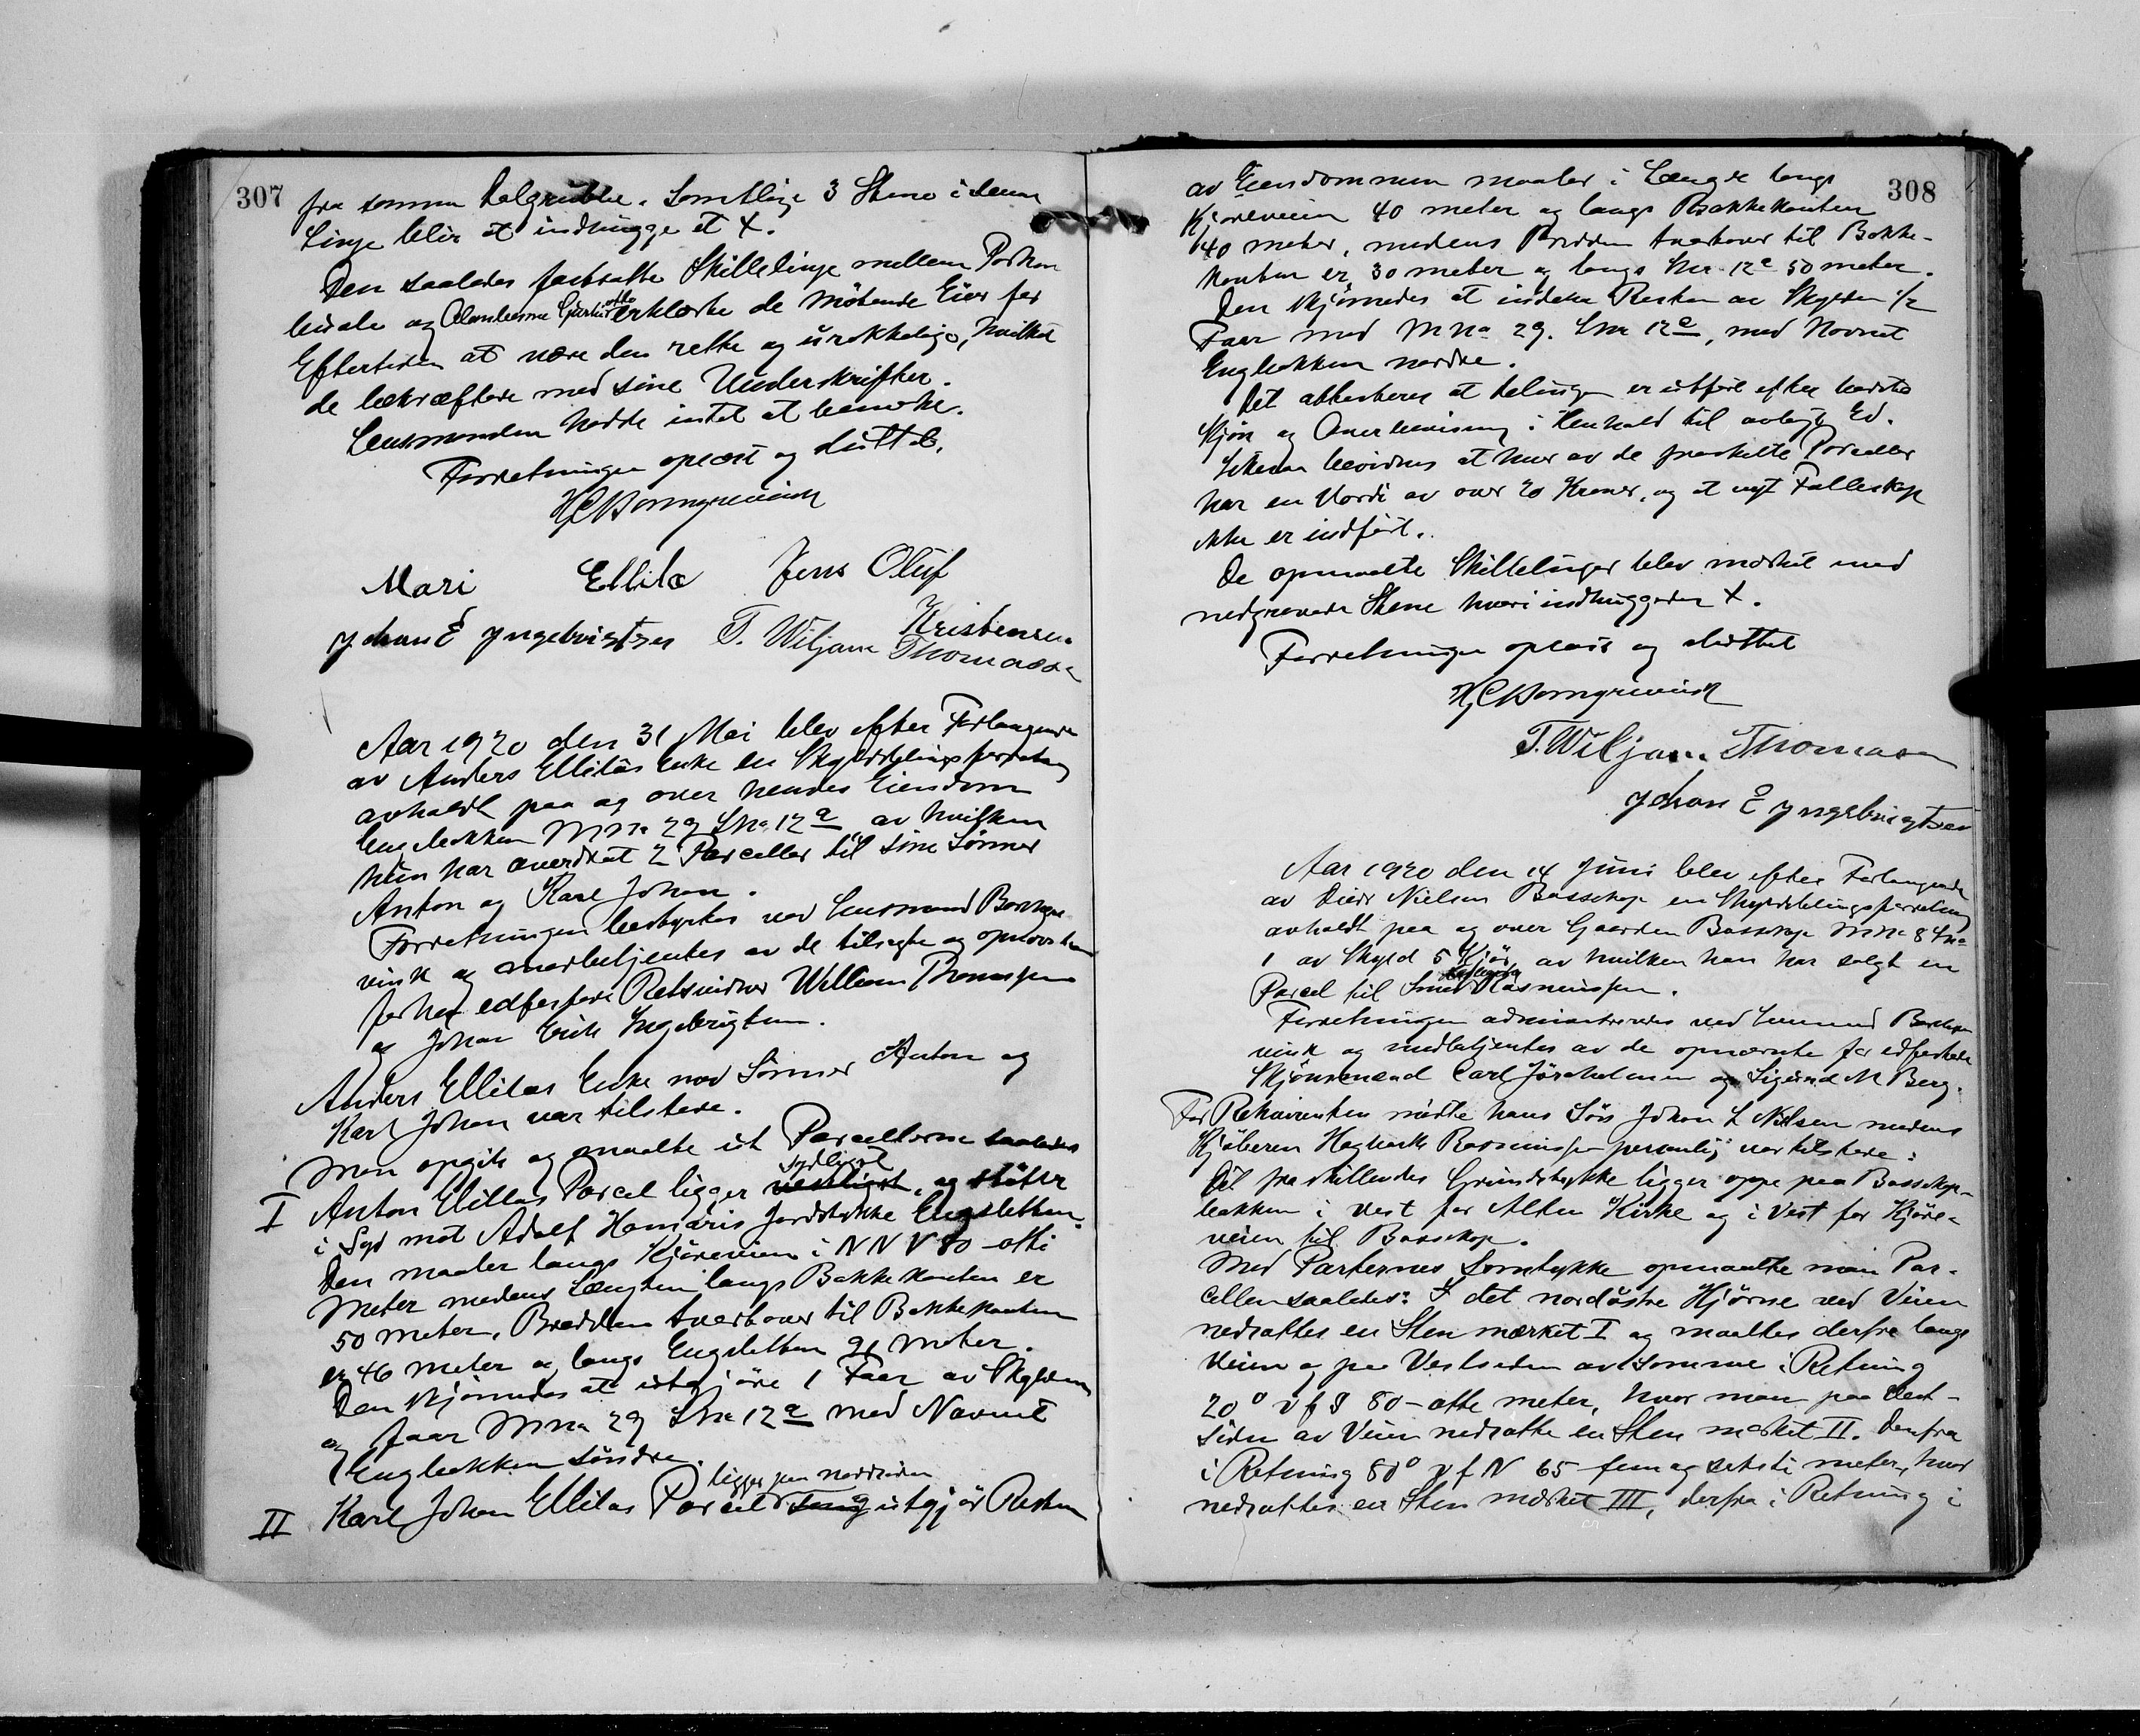 307
fra samme Dalgrubbe. Samtlige 3 Stene i denne
Linje blev at indhugge et +.
Den saaledes fastsatte Skillelinje mellem
og erklærte de møtende Eier for
Eftertiden at være den rette og urokkelige, hvilket
de bekræftede med sine Underskrifter.
Lensmanden hadde intet at bemerke.
Forretningen oplæst og sluttet.
Mari Ellila Jens Oluf
Kristensen
Johan E Yngebrigtsen T. Wiljam Thomasen
Aar 1920 den 31 Mai blev efter Forlangende
av Anders Ellilas Enke en Skylddelingsforretning
avholdt paa og over hendes Eiendom
Engbakken M No 29 L No 12a av hvilken
hun har overdrat 2 Parceller til sine Sønner
Anton og Karl Johan.
Forretningen bestyrtes ved Lensmand
og medbetjentes av de tilsagte og
forhen edfestede Retsvidner William Thomassen
og Johan Erik Ingebrigtsen.
Anders Ellilas Enke med Sønner Anton og
Karl Johan var tilstede.
Man opgik og maalte ut Parcellerne saaledes
sydligst
I Anton Ellilas Parcel ligger vestligst, og støter
i Syd mot Adolf Jordstykke Engsletten.
Den maaler langs Kjøreveien i NNV 80 - otti
Meter medens Længden langs Bakkekanten er
50 meter. Bredden tversover til Bakkekanten
er 46 meter og langs Engsletten 91 meter.
Den skjønnedes at utgjøre 1 Faar av Skylden
og faar M No 29 L No 12a med Navnet
Engbakken søndre.
ligger paa nordsiden
II Karl Johan Ellilas Parcel utgjør Resten
308
av Eiendommen maaler i Længde langs
Kjøreveien 40 meter og langs Bakkekanten
40 meter, medens Bredden tversover til Bakke-
kanten er 30 meter og langs L No 12a 50 meter.
Den skjønnedes at indeha Resten av Skylden 1/2
Faar med M No 29. L No 12, med Navnet
Engbakken nordre.
Det attesteres at delingen er utført efter bedste
Skjøn og Overbevisning i Henhold til avlagt Ed.
Likesaa bevidnes at hver av de fraskilte Parceller
har en Værdi av over 20 Kroner, og at nyt Fælleskap
ikke er indført.
De opmaalte Skillelinjer blev merket med
nedgravede Stene hvori indhuggedes +.
Forretningen oplæst og sluttet
T. Wiljam Thomasen
Johan E Yngebrigtsen
Aar 1920 den 14 Juni blev efter Forlangende
av Nielsen Bossekop en Skylddelingsforretning
avholdt paa og over Gaarden Bossekop M No 8 L No
1 av Skyld 5 av hvilken han har solgt en
Parcel til Rasmussen.
Forretningen administreredes ved Lensmand
og medbetjentes av de opnævnte før edfestede
Skjønsmænd Carl Jøraholmen og Sigurd M Berg.
For Rekvirenten møtte hans Søn Johan L Nilsen medens
Kjøberen Hagbart Rasmussen personlig var tilstede.
Det fraskillendes Grundstykke ligger oppe paa Bossekop-
bakken i vest for Alten Kirke og i Vest for Kjøre-
veien til Bossekop.
Med Parternes Samtykke opmaalte man Par-
cellen saaledes: I det nordøstre Hjørne ved Veien
nedsattes en Sten mærket I og maaltes derfra langs
Veien og paa Vestsiden av samme i Retning
20° v f S 80 - otte meter, hvor man paa Vest-
siden av Veien nedsatte en Sten mærket II. Derfra
i Retning 80° v f N 65 - fem og seksti meter, hvor
nedsattes en Sten mærket III, derfra i Retning i